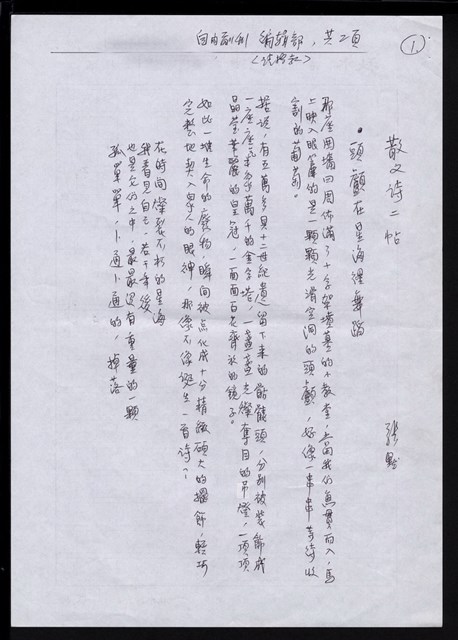 自由副刊 編輯部，共二頁
①
散文诗二帖
張默
·頭顱在星海裡舞蹈
那座围墙四周佈滿了十字架墳墓的小教堂，當我们魚贯而入，馬
上映入眼簾的是一顆顆光滑空洞的頭顱，好像一串串等待收
割的葡萄。
据说，有五萬多具十二世紀遺留下来的骷髏頭，分别被裝飾成
一座座气象萬千的金字塔，一盞盞光燦奪目的吊燈，一項項
晶莹華麗的皇冠，一面面百花齊放的鏡子。
如此一堆生命的廢物，瞬间被点化成十分精緻碩大的擺飾，輕巧
完整地契入眾人的眼神，那像不像诞生一首诗？
在時间燦裂不朽的星海
我看見自己，若干年後
也是它们之中，最最没有重量的一顆
孤單單，卜通卜通的，掉落